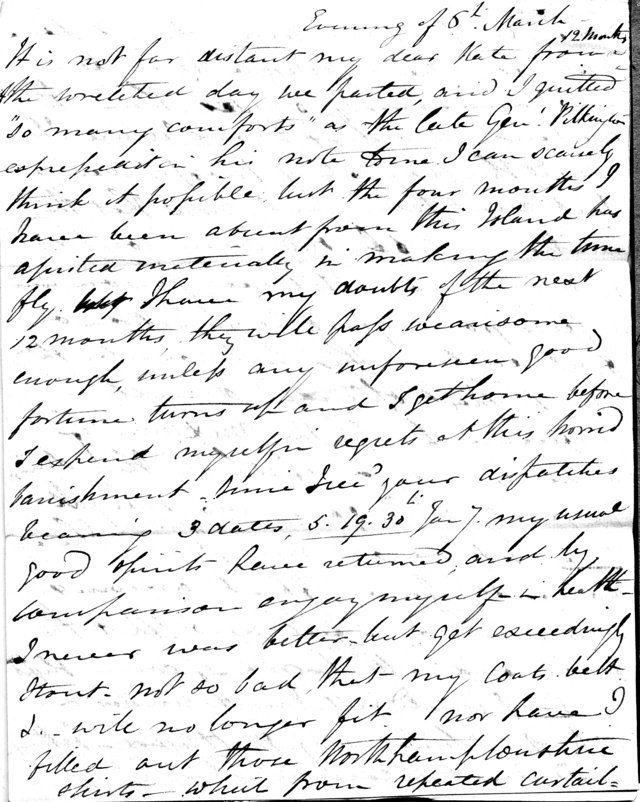 Evening of 6th March
It is not far distant my dear Kate from 12 Months
the wretched day we parted, and I quitted
"so many comforts" as the late Genl. Pilkington
expressed it in his note to me I can scarcely
think it possible but the four months I
have been absent from this Island has
assisted materially in making the time
fly I have my doubts of the next
12 months, they will pass wearisome
enough, unless any unforeseen good
fortune turns up and I get home before
I expend myself in regrets at this horrid
banishment. Since I recd your dispatches
bearing 3 dates, 5. 19. 30th Jany. my usual
good spirits have returned, and by
comparison enjoy myself in health
I never was better but get exceedingly
stout not so bad that my Coats belt
will no longer fit. nor have I
filled out those Northamptonshire
shirts which from repeated curtail=